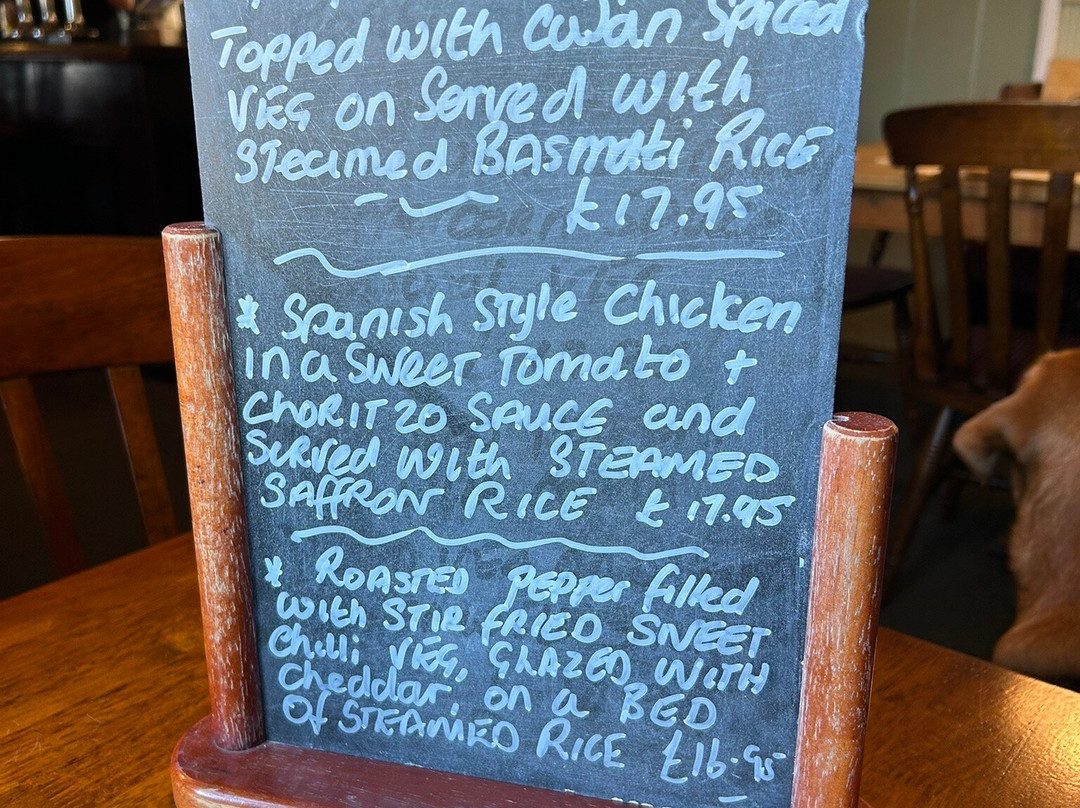 Topped with Cajan Spiced
VEG on Served with
STeamed BASmati RICE
£17.95
* Spanish Style Chicken
in a SWEET Tomato +
CHORITZO SAUCE and
Served with STEAMED
SAFFRON RICE £17.95
* ROASTED PEPPer filled
with STIR FRIED SWEET
Chilli VEG, GLAZED WITH
Cheddar, on a BED
OF STEAMED RICE £16.95